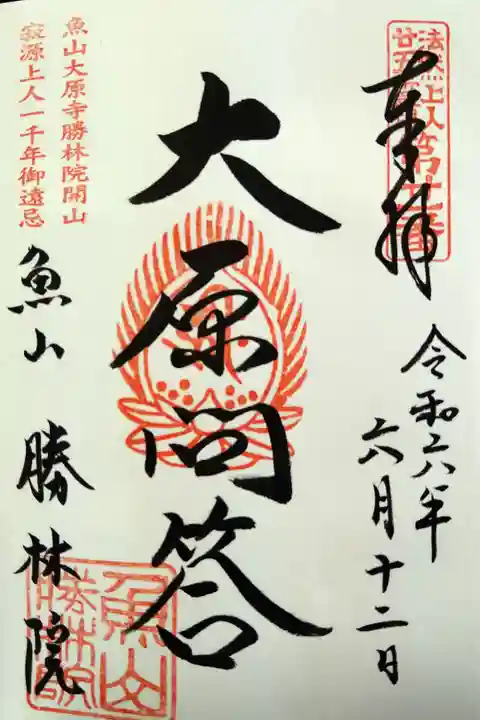 奉拝
令和六年
六月十二日
大原問答
魚山大原寺勝林院開山
寂源上人一千年御遠忌
魚山 勝林院
魚山
勝林院